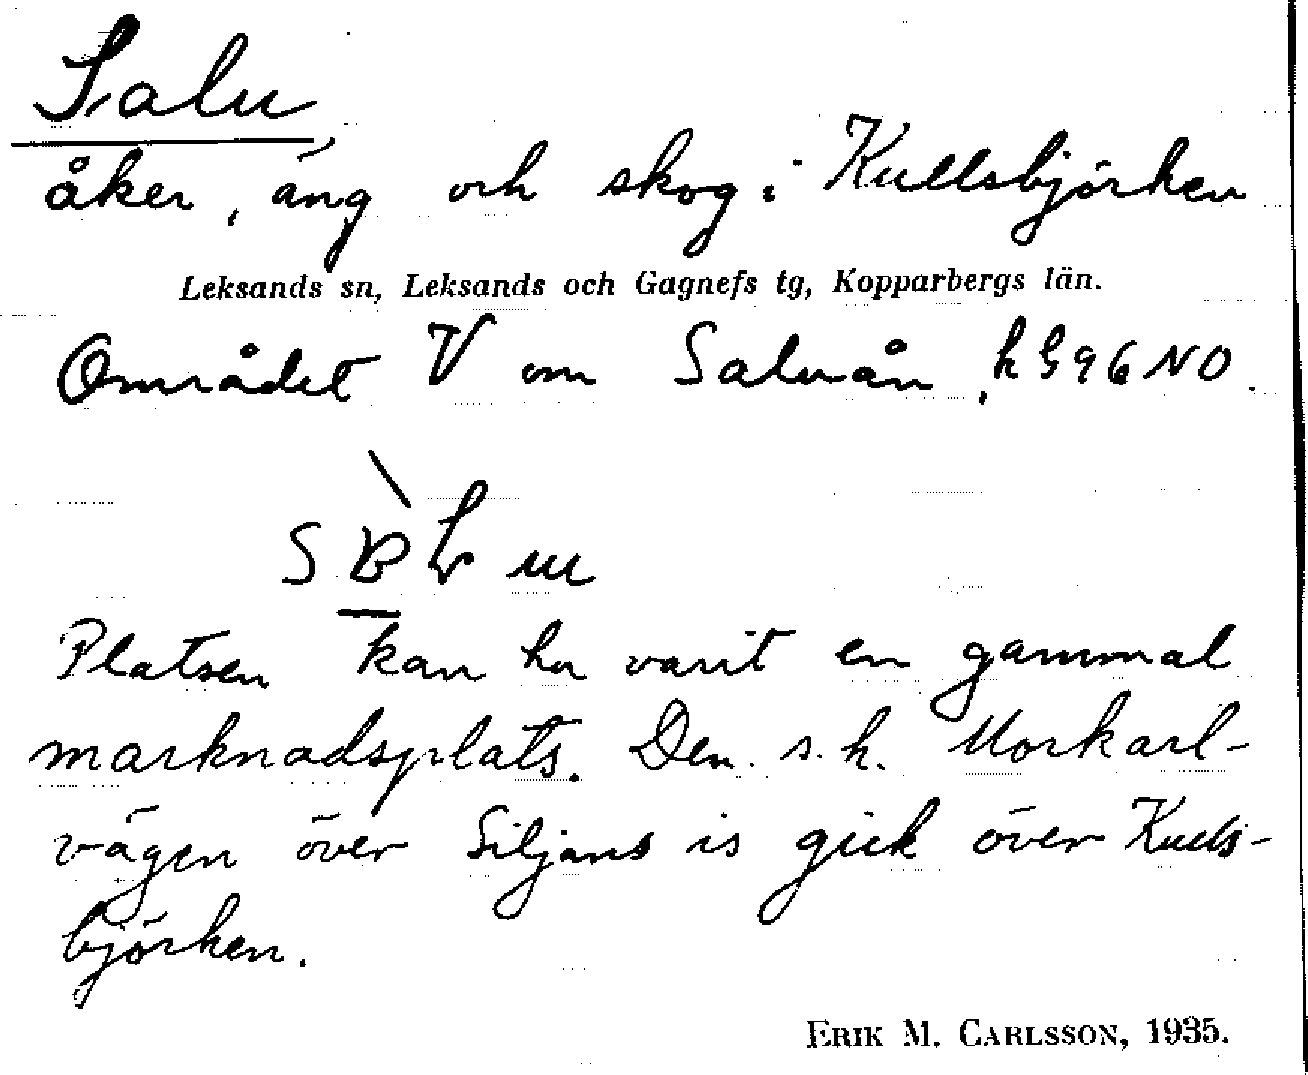 Salu
åker, äng och skog i Kullsbjörken
Leksands sn, Leksands och Gagnefs tg, Kopparbergs län.
Området V om Saluån, h G 96 NO.
Platsen kan ha varit en gammal
marknadsplats. Den s.k. Morkarl-
vägen över Siljans is gick över Kulls-
björken.
ERIK M. CARLSSON, 1935.